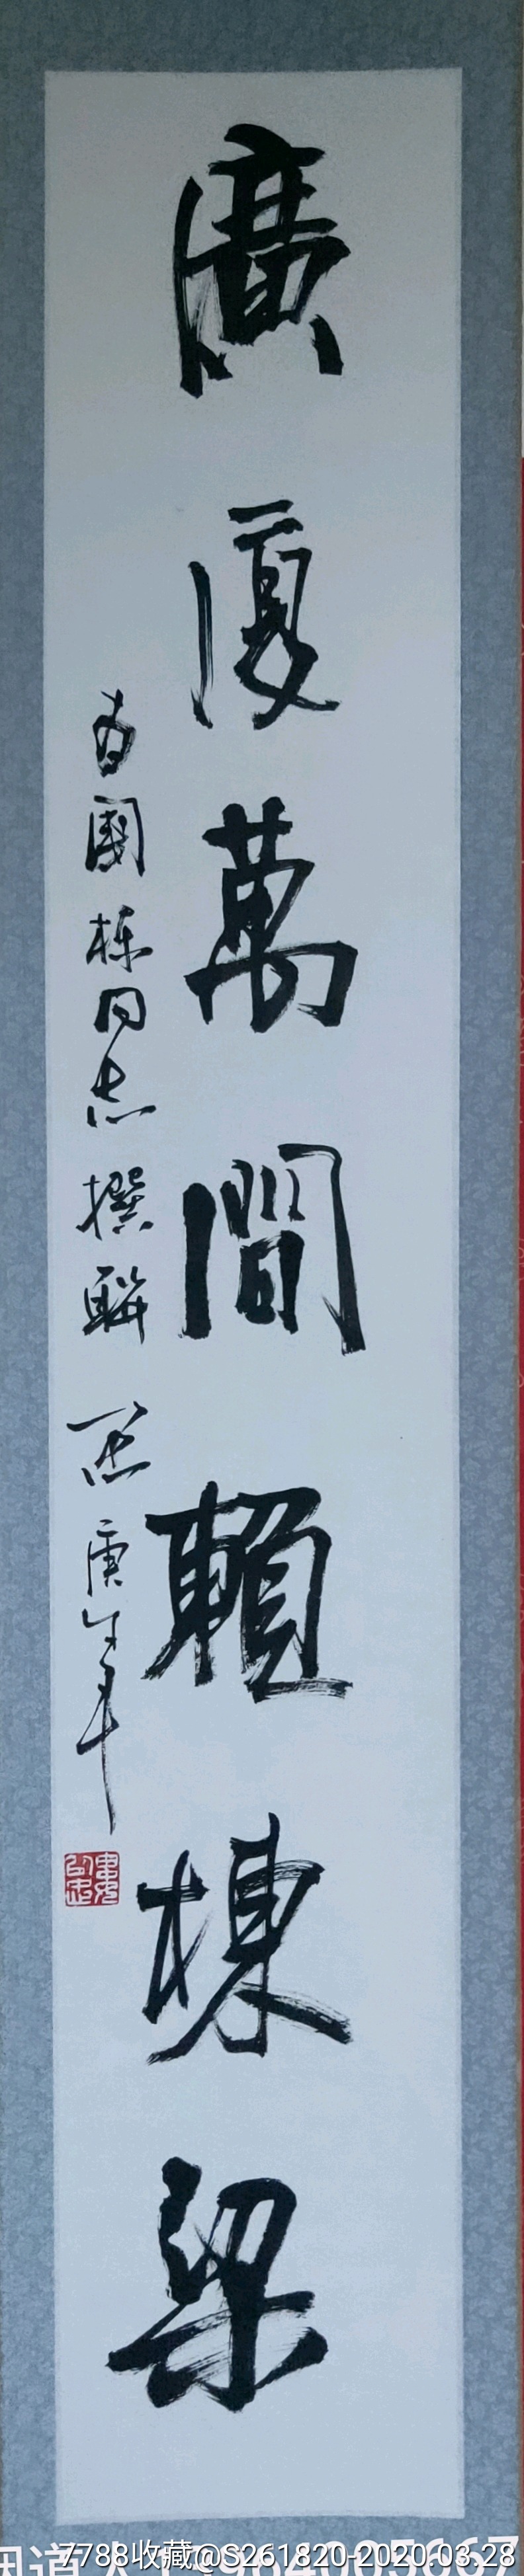 廣廈萬間賴棟梁
為國棟同志撰聯 庚午年
7788收藏@S261820-2020.03.28